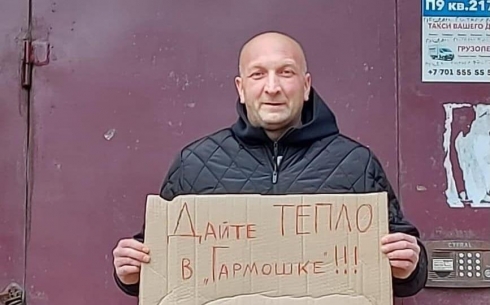 П9 кв.217
ТАКСИ ВАШЕГО Д
ГРУЗОПЕ
+7 701 555 55 5
CYFRAL
Дайте ТЕПЛО
в „Гармошке" !!!